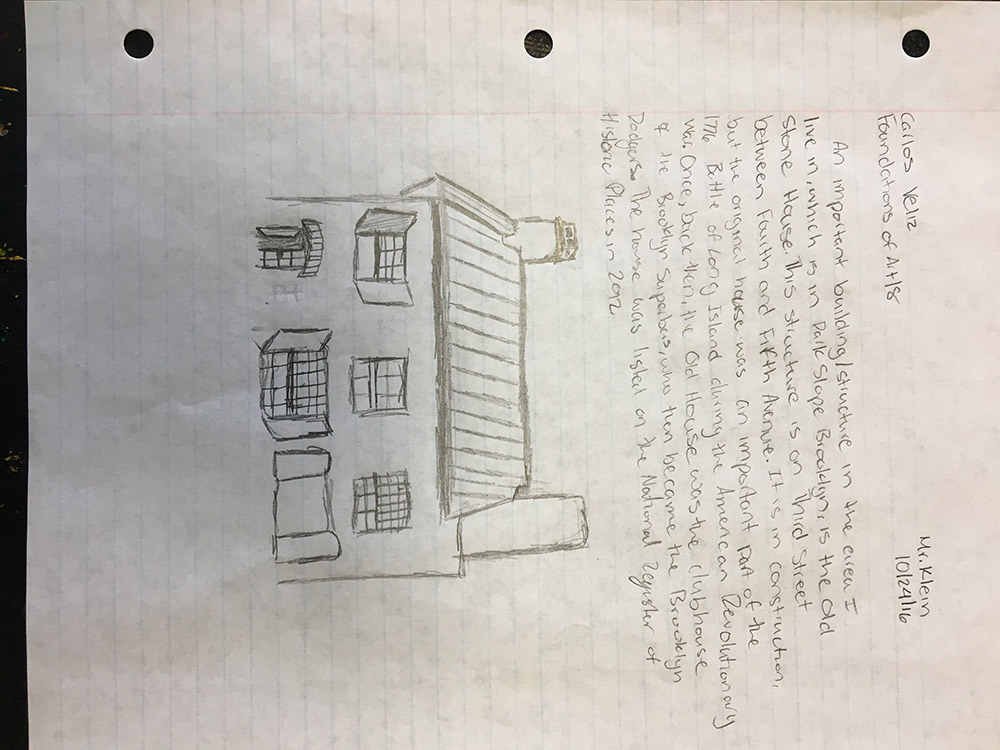 Carlos Veliz
Mr. Klein
Foundations of Art/8
10/24/16
An important building/structure in the area I
live in, which is in Park Slope Brooklyn, is the Old
Stone House. This structure is on Third Street
between Fourth and Fifth Avenue. It is in construction,
but the original house was an important part of the
1776 Battle of Long Island during the American Revolutionary
War. Once, back then, the Old House was the clubhouse
of the Brooklyn Superbas, who then became the Brooklyn
Dodgers. The house was listed on the National Register of
Historic Places in 2012.